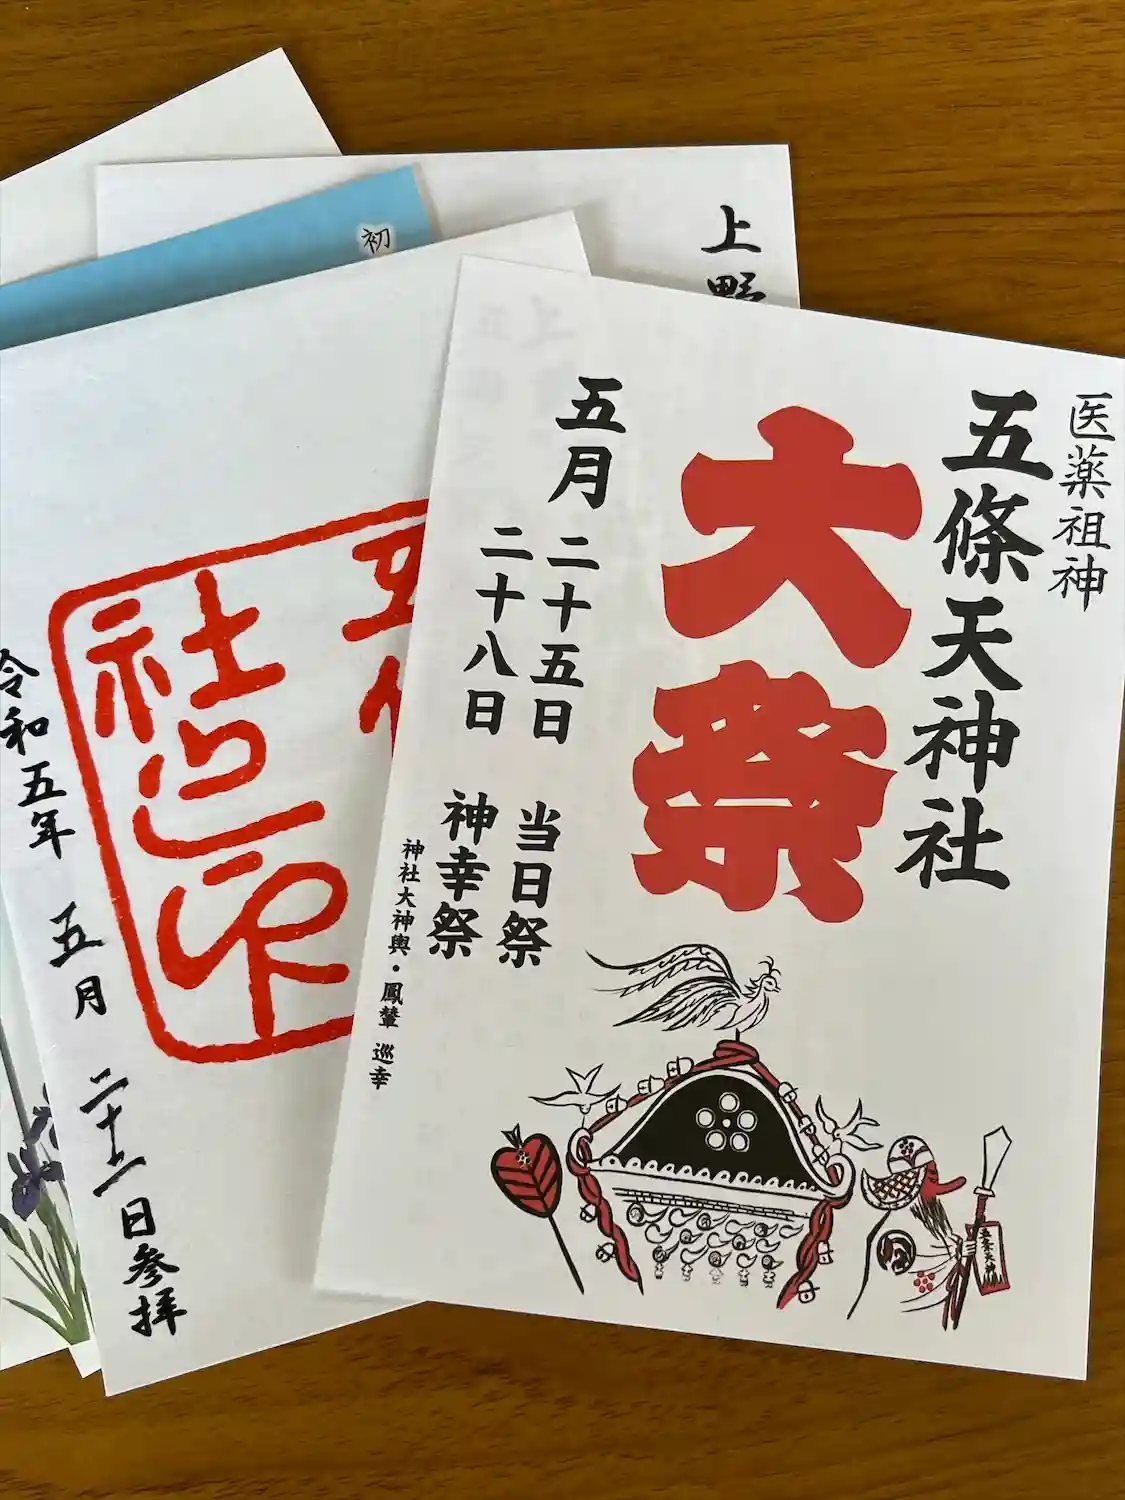 医薬祖神
五條天神社
大祭
五月
二十五日 当日祭
二十八日 神幸祭
神社大神輿・鳳輦 巡幸
五条天神
上野
初
令和五年 五月 二十二日参拝